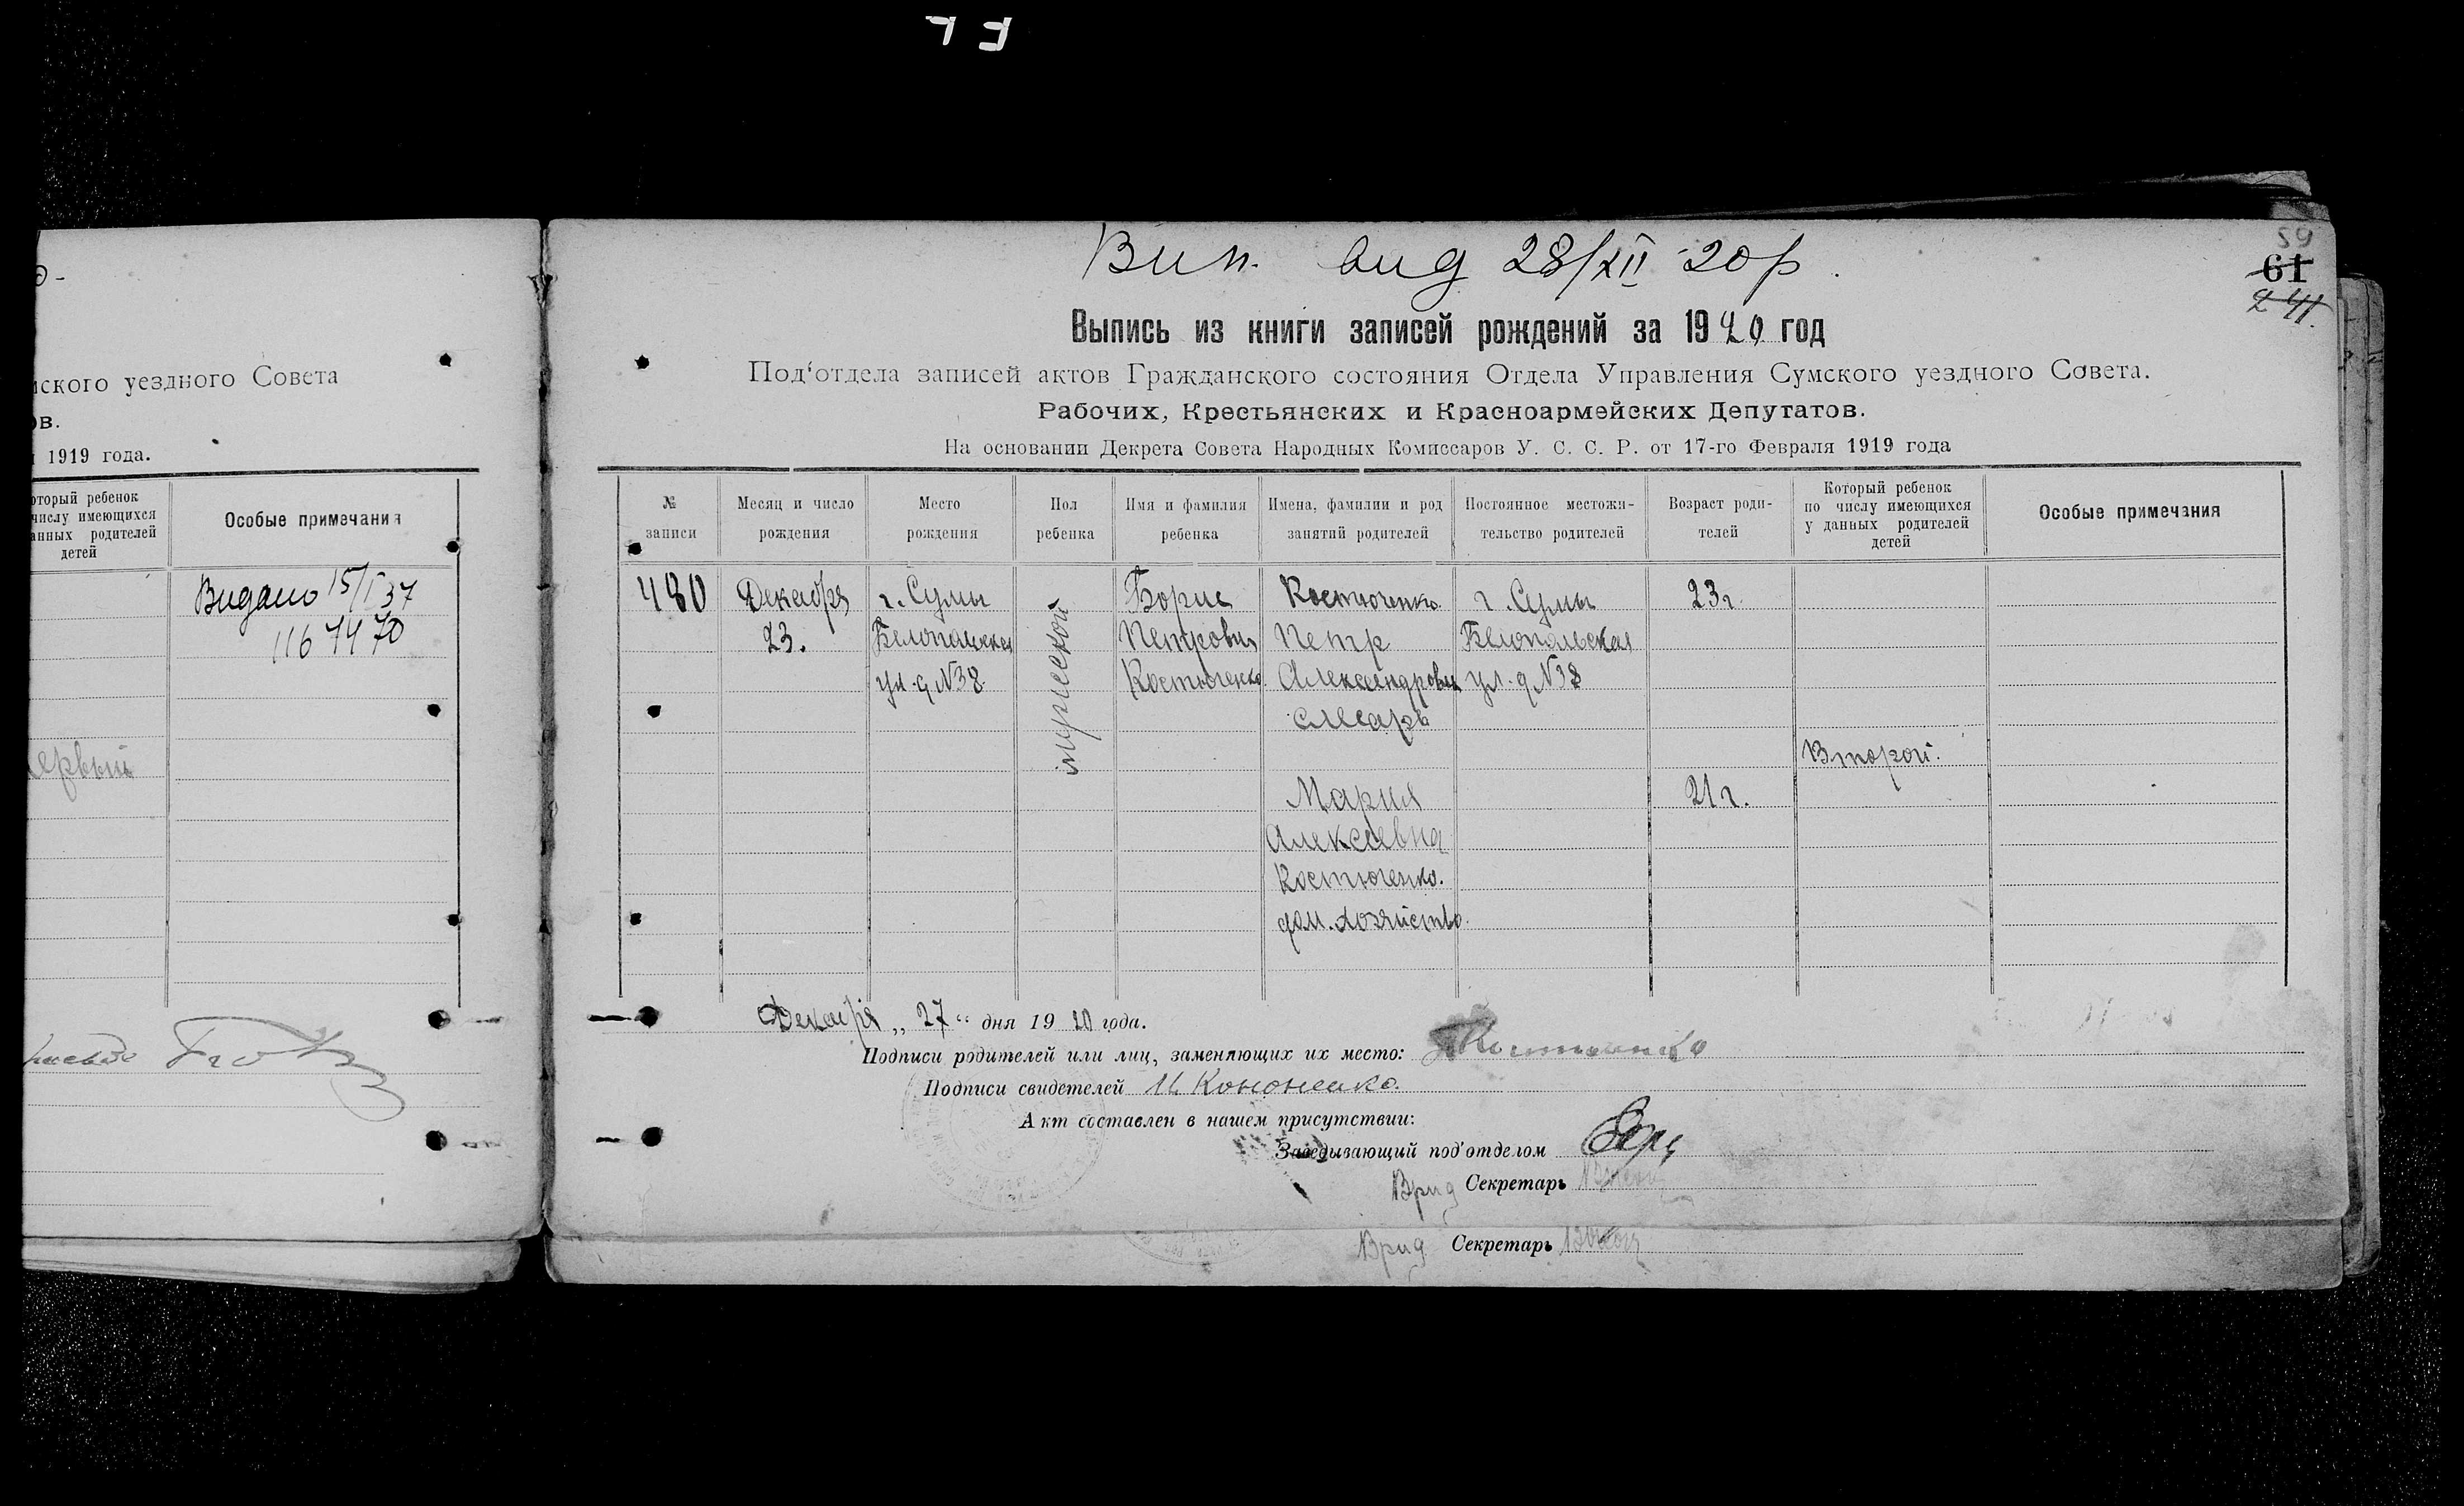 мского уездного Совета
ов.
1919 года.
оторый ребенок
числу имеющихся
анных родителей
детей
Особые примечания
Видано 15/I 37
1167470
ервый
Вип. вид 28/XII 20р.
59
61
241.
Выпись из книги записей рождений за 1920 год
Под'отдела записей актов Гражданского состояния Отдела Управления Сумского уездного Совета.
Рабочих, Крестьянских и Красноармейских Депутатов.
На основании Декрета Совета Народных Комиссаров У. С. С. Р. от 17-го Февраля 1919 года
№ записи
Месяц и число рождения
Место рождения
Пол ребенка
Имя и фамилия ребенка
Имена, фамилии и род занятий родителей
Постоянное местожи-тельство родителей
Возраст роди-телей
Который ребенок по числу имеющихся у данных родителей детей
Особые примечания
480
Декабря
23.
г. Сумы
Белопольская
ул. д N38.
мужеской
Борис
Петрович
Костюченко
Костюченко
Петр
Александрович
слесарь
Мария
Алексеевна
Костюченко.
дом. хозяйство.
г. Сумы
Белопольская
ул. д N38
23 г.
21 г.
Второй.
Декабря „27" дня 1920 года.
Подписи родителей или лиц, заменяющих их место:
Подписи свидетелей И Кононенко.
Акт составлен в нашем присутствии:
Заведывающий под'отделом
Врид Секретарь
Врид Секретарь